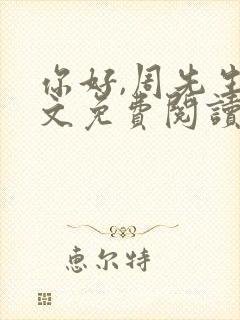 你好,周先生
文免費閱讀
惠尔特